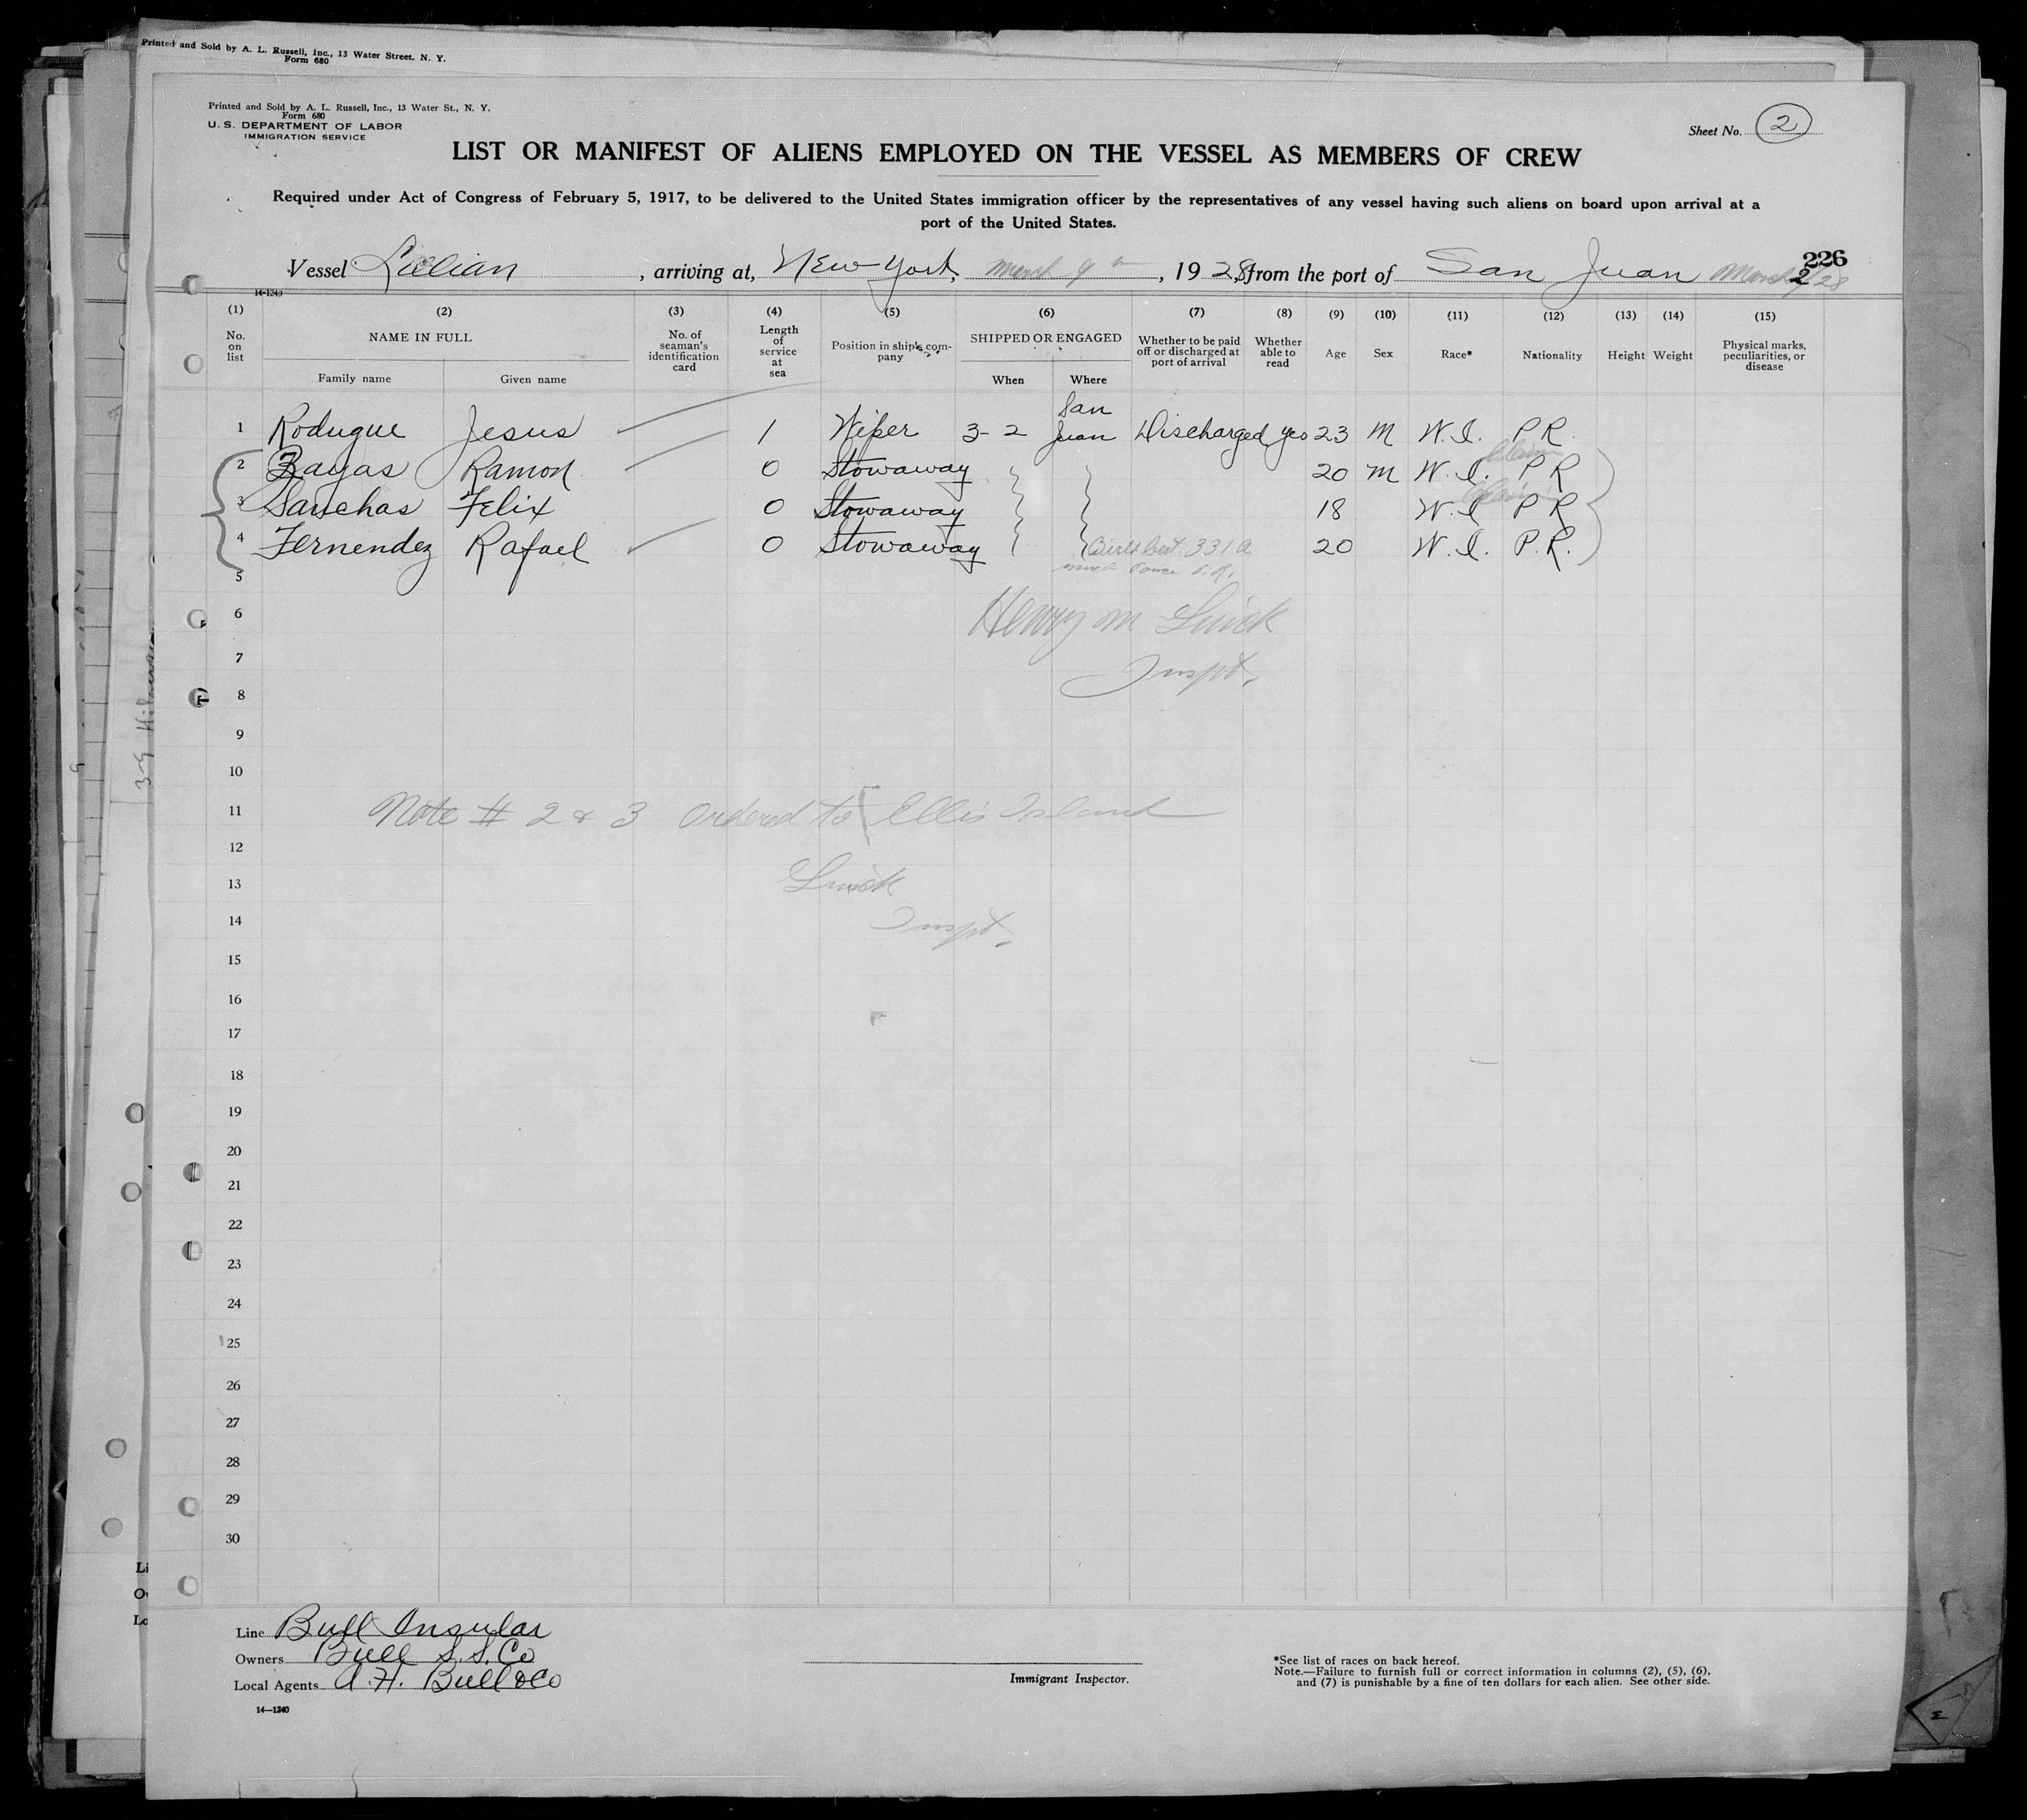 Printed and Sold by A. L. Russell, Inc., 13 Water Street, N. Y.
Form 680
Printed and Sold by A. L. Russell, Inc., 13 Water St., N. Y.
Form 680
U. S. DEPARTMENT OF LABOR
IMMIGRATION SERVICE
Sheet No. 2
LIST OR MANIFEST OF ALIENS EMPLOYED ON THE VESSEL AS MEMBERS OF CREW
Required under Act of Congress of February 5, 1917, to be delivered to the United States immigration officer by the representatives of any vessel having such aliens on board upon arrival at a
port of the United States.
226
Vessel Lillian, arriving at, New York, March 9th, 1928, from the port of San Juan March 2/28
14-1240
(1) (2) (3) (4) (5) (6) (7) (8) (9) (10) (11) (12) (13) (14) (15)
No. on list NAME IN FULL No. of seaman's identification card Length of service at sea Position in ship's company SHIPPED OR ENGAGED Whether to be paid off or discharged at port of arrival Whether able to read Age Sex Race* Nationality Height Weight Physical marks, peculiarities, or disease
Family name Given name When Where
1 Rodugue Jesus 1 Wiper 3-2 San Juan Discharged yes 23 M W.I. P.R.
2 Zayas Ramon 0 Stowaway 20 M W.I. P R
3 Sanchas Felix 0 Stowaway 18 W.I P R
4 Fernendez Rafael 0 Stowaway Birth Cert. 331 a 20 W.I. P.R.
issued Ponce P.R.
5
6 Henry M
7 Inspt.
8
9
10
11 Note # 2 & 3 Ordered to Ellis Island
12
13
14 Inspt.
15
16
17
18
19
20
21
22
23
24
25
26
27
28
29
30
Line Bull Insular
Owners Bull S.S. Co
Local Agents A.H. Bull & Co
14—1240
Immigrant Inspector.
*See list of races on back hereof.
Note.—Failure to furnish full or correct information in columns (2), (5), (6),
and (7) is punishable by a fine of ten dollars for each alien. See other side.